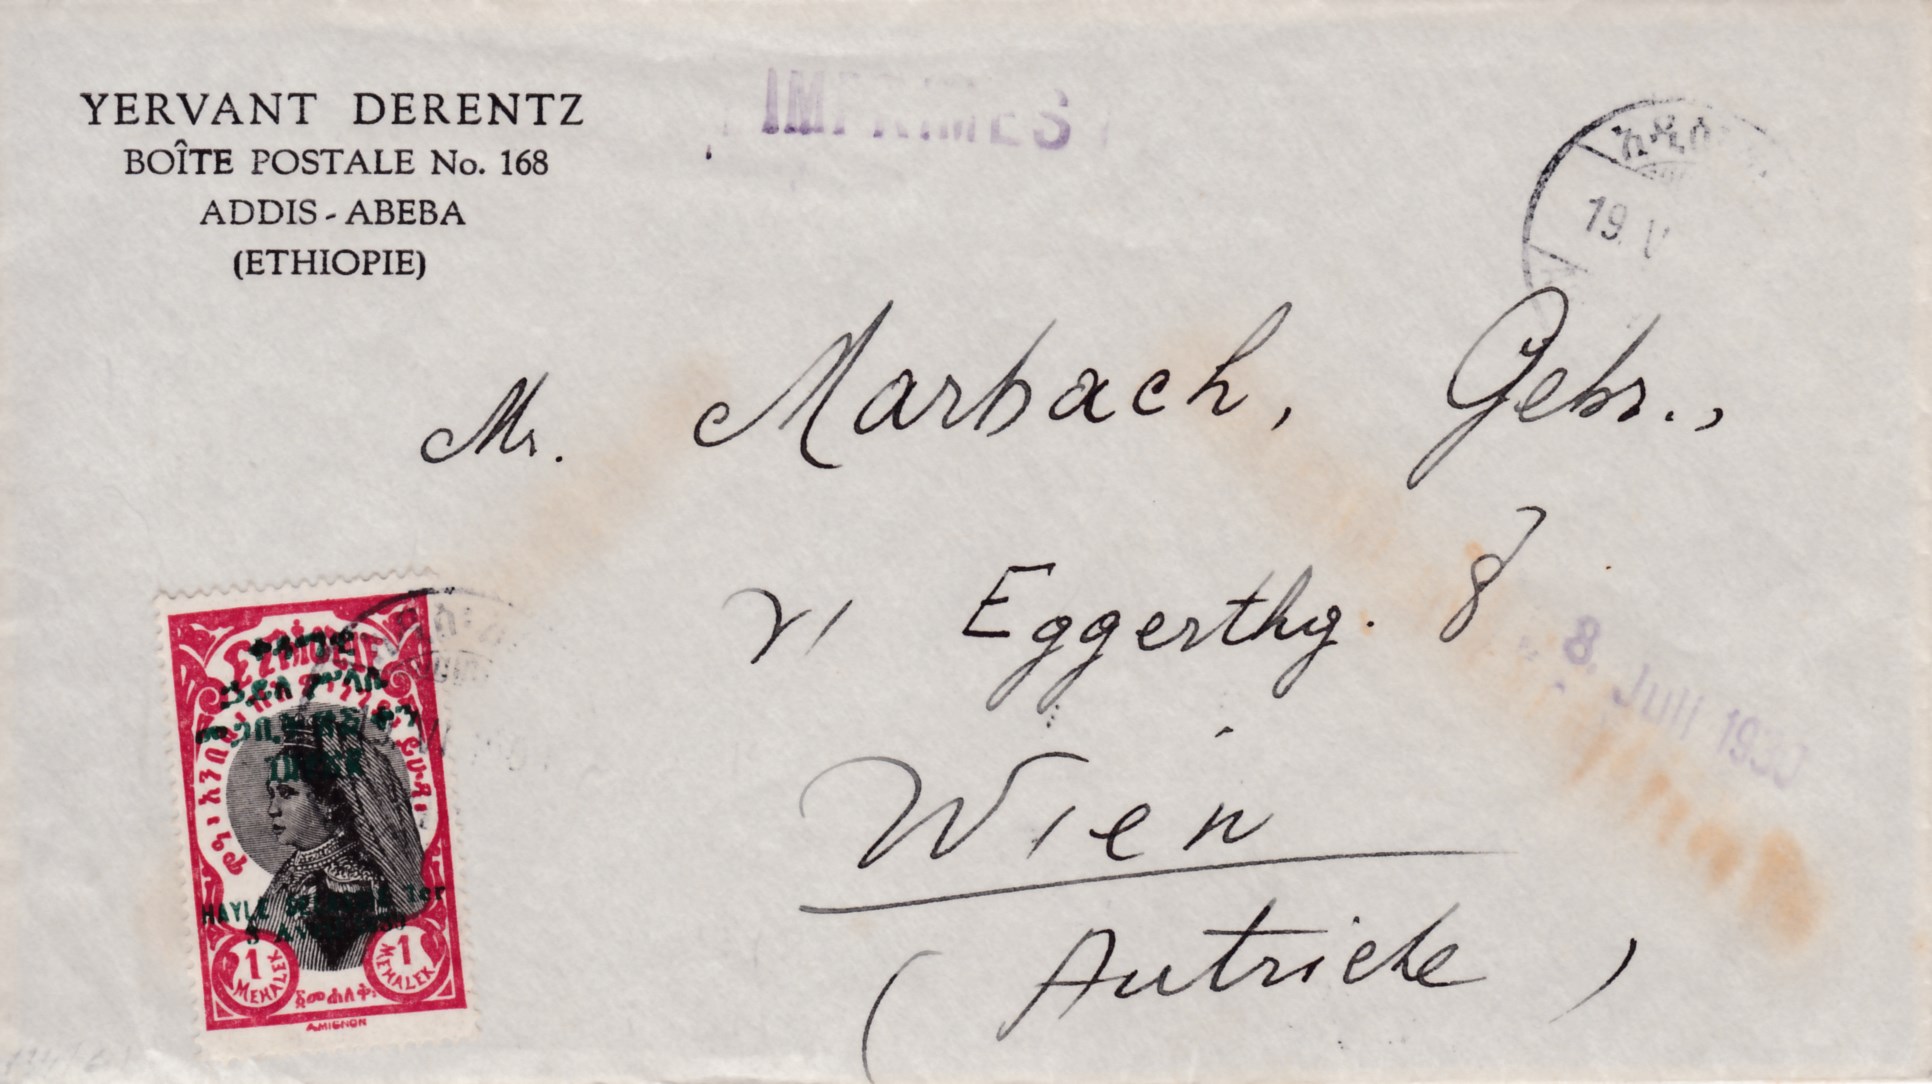 YERVANT DERENTZ
BOÎTE POSTALE No. 168
ADDIS-ABEBA
(ETHIOPIE)
IMPRIMES
19. V
Mr. Marbach, Gebr.,
VI Eggerthg. 8
Wien
(Autriche)
8. Juli 193
ኃይለ ሥላሴ
HAYLE 1er
1 MEHALEK
1 MEHALEK
A.MIGNON